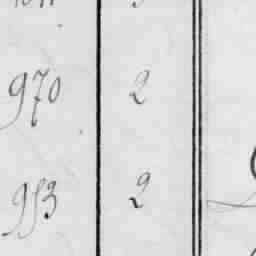 970 2
953 2